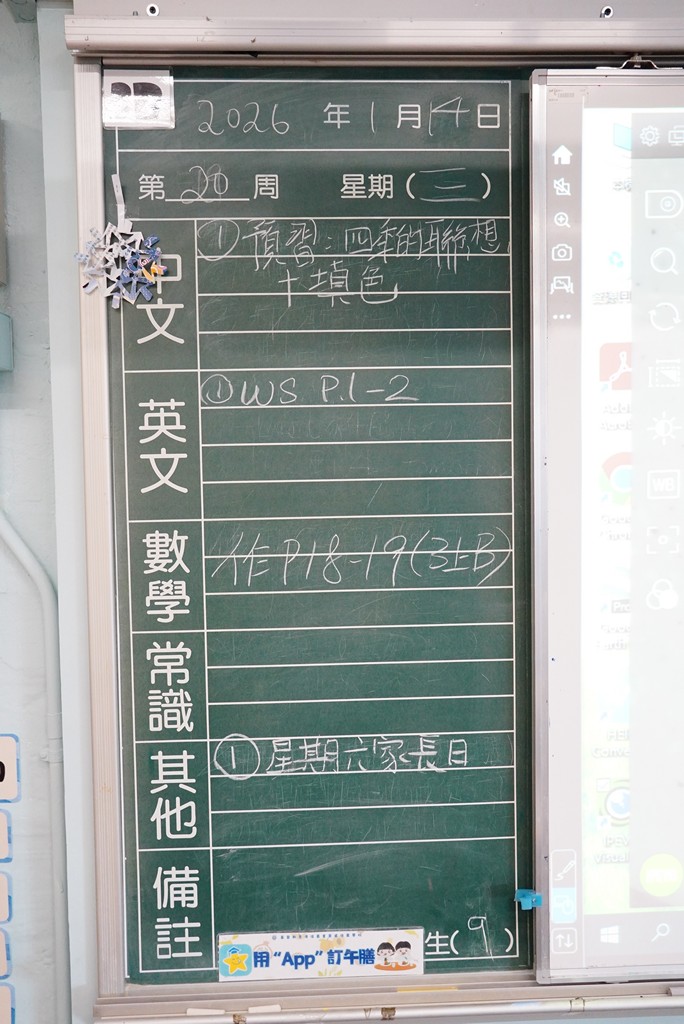 2026 年 1 月 14 日
第 20 周 星期(三)
中文
① 預習:四季的聯想
+填色
英文
① WS P.1-2
數學
作 P18-19(3上B)
常識
其他
① 星期六家長日
備註
用 "App" 訂午膳
生(9)
WB